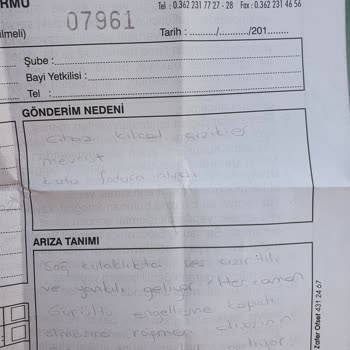 RMU
Tel : 0.362 231 77 27 - 28 Fax : 0.362 231 46 56
07961
ilmeli)
Tarih : ........./........./201.......
Şube :
Bayi Yetkilisi :
Tel :
GÖNDERİM NEDENİ
Cihaz kılcal çizikler
mevcut
kutu fatura
ARIZA TANIMI
Sağ kulaklıkta ses cızırtılı
ve yankılı geliyor. Her zaman
Gürültü engelleme kapalı
olmasına rağmen
Zafer Ofset 431 24 67